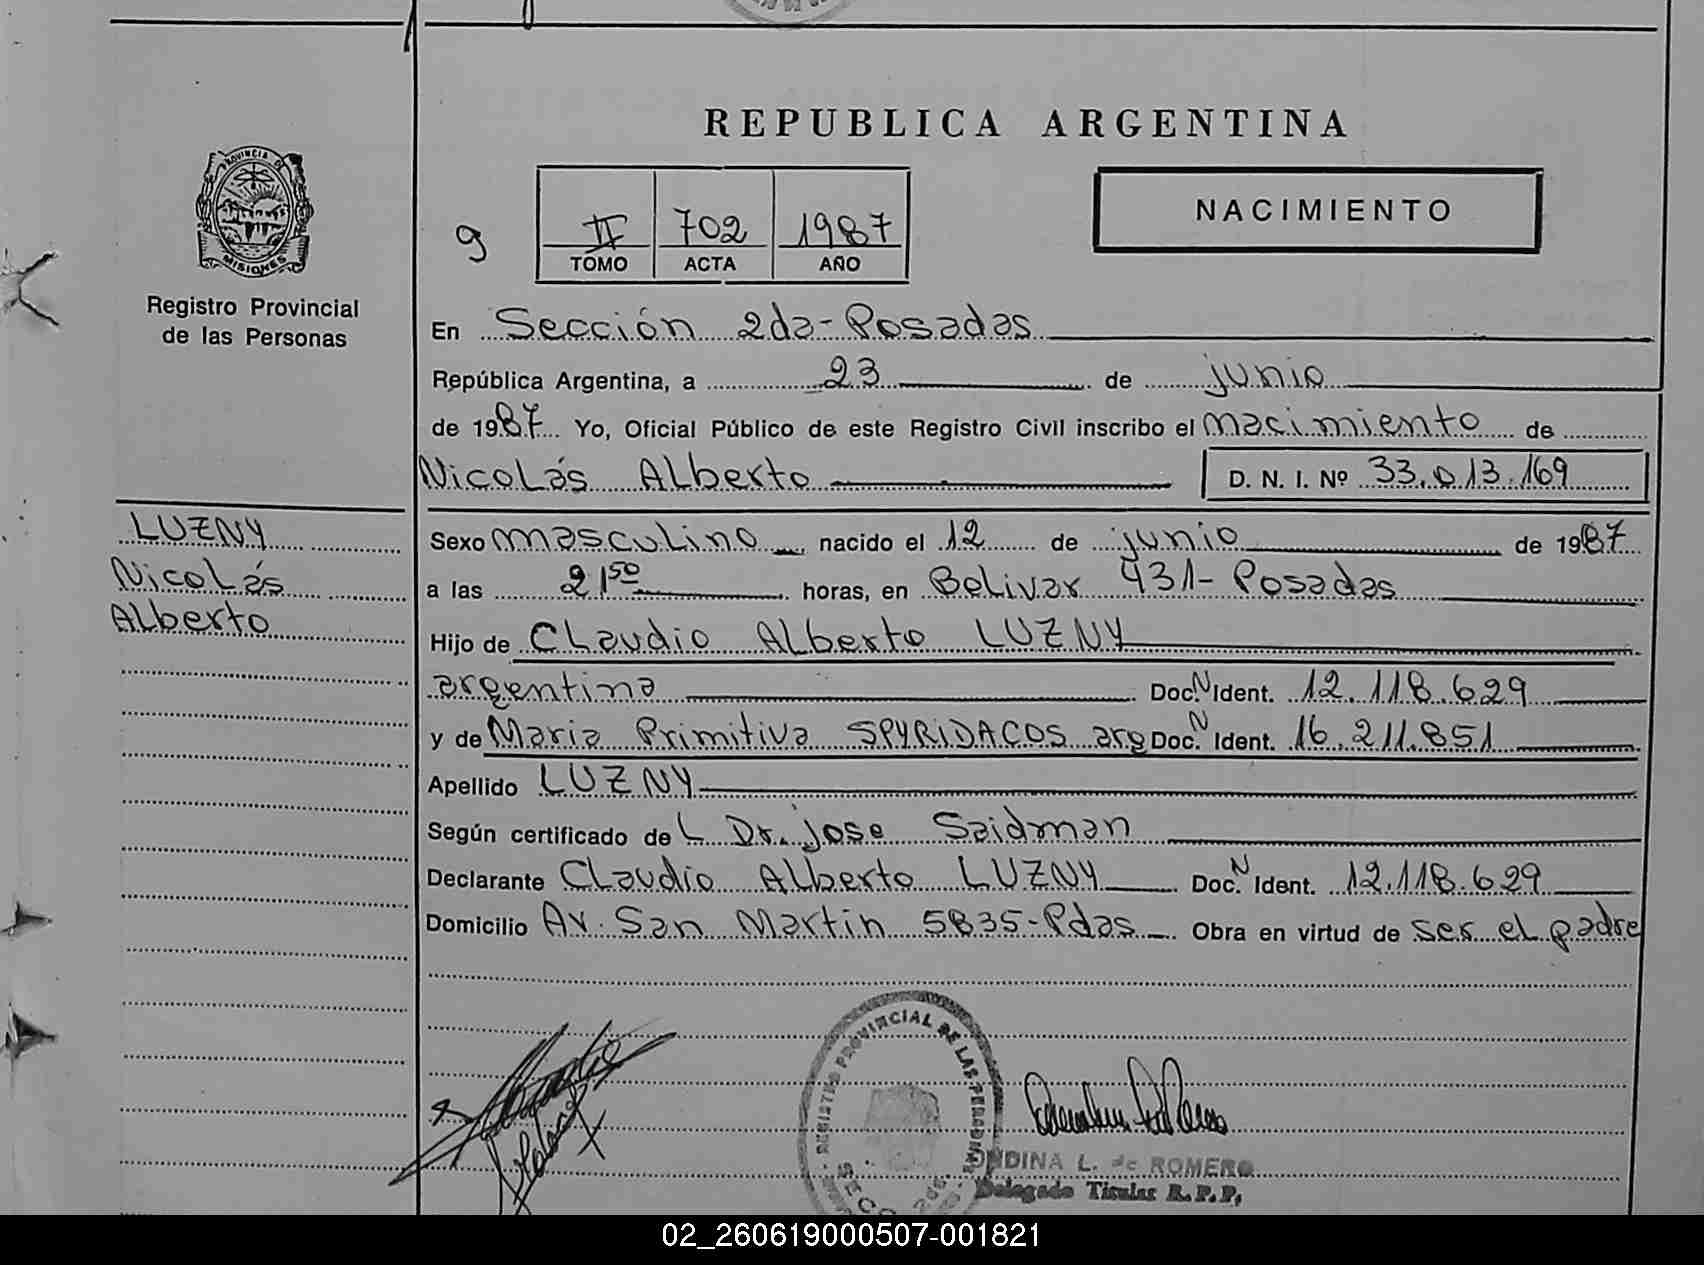 REPUBLICA ARGENTINA
PROVINCIA DE
MISIONES
Registro Provincial
de las Personas
9
II 702 1987
TOMO ACTA AÑO
NACIMIENTO
En Sección 2da- Posadas
República Argentina, a 23 de junio
de 1987 Yo, Oficial Público de este Registro Civil inscribo el nacimiento de
Nicolás Alberto D. N. I. Nº 33.013.169
LUZNY
Nicolás
Alberto
Sexo masculino nacido el 12 de junio de 1987
a las 21 50 horas, en Bolivar 431- Posadas
Hijo de Claudio Alberto LUZNY
argentina Doc. N Ident. 12.118.629
y de Maria Primitiva SPYRIDACOS arg Doc. N Ident. 16.211.851
Apellido LUZNY
Según certificado de L Dr. jose Saidman
Declarante Claudio Alberto LUZNY Doc. N Ident. 12.118.629
Domicilio Av. San Martin 5835-Pdas Obra en virtud de ser el padre
REGISTRO PROVINCIAL DE LAS PERSONAS
ONDINA L. de ROMERO
Delegado Titular R.P.P.
02_260619000507-001821